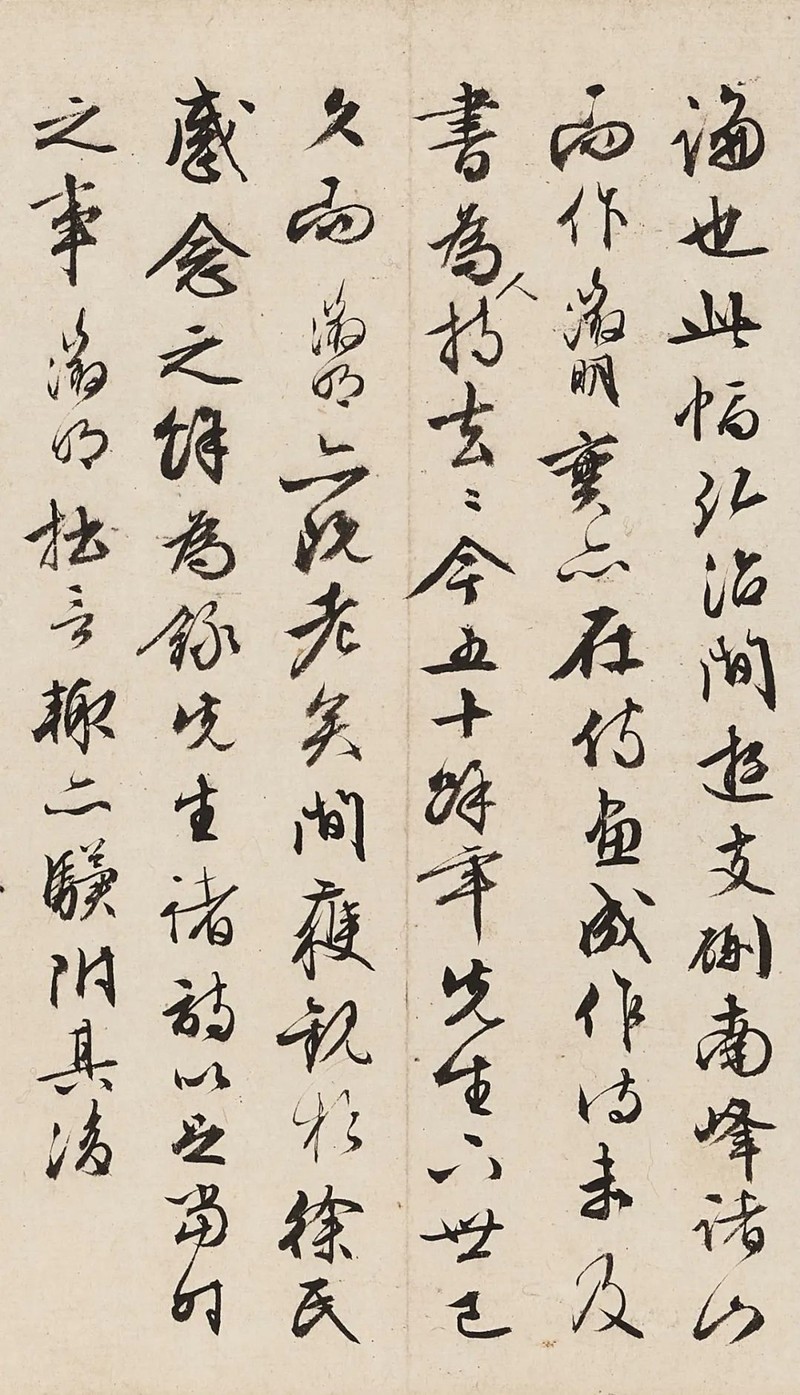 論也此幅弘治間遊支硎南峰諸山
而作徵明實亦在侍畫成作詩未及
書為人持去〻今五十餘年先生下世已
久而徵明亦既老矣間獲觀於徐氏
感念之餘為錄先生諸詩以足當时
之事徵明拙言輒亦驥附其後